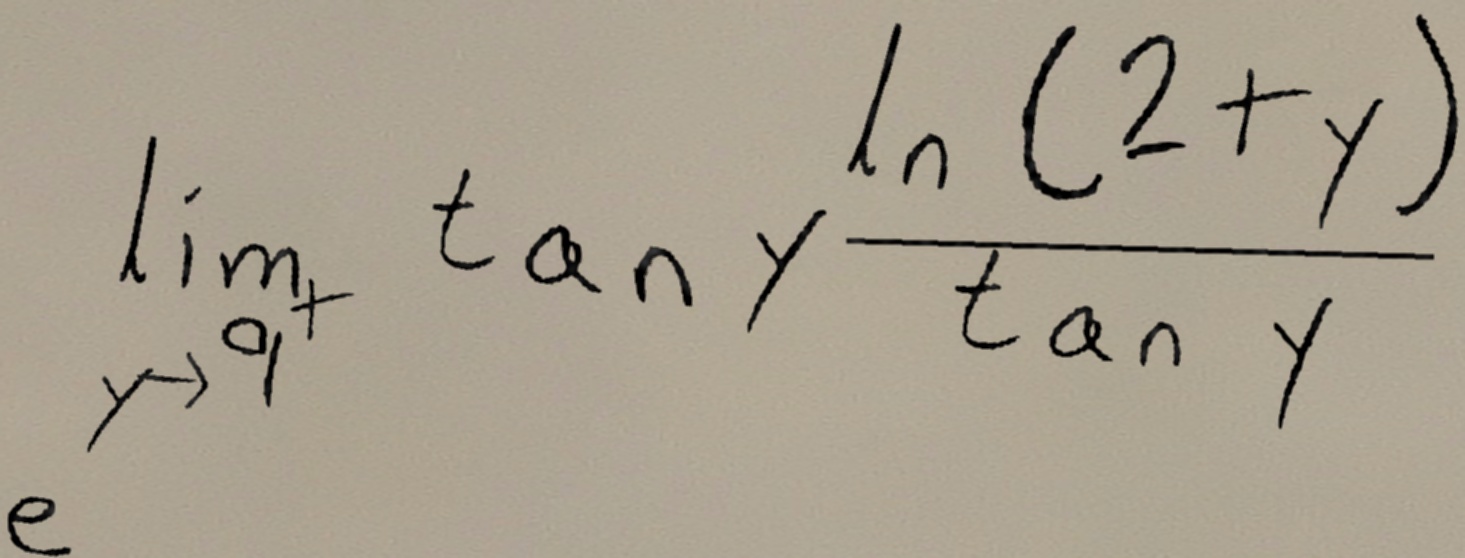 e^{\lim_{y \to 9^+} \tan y \frac{\ln(2+y)}{\tan y}}